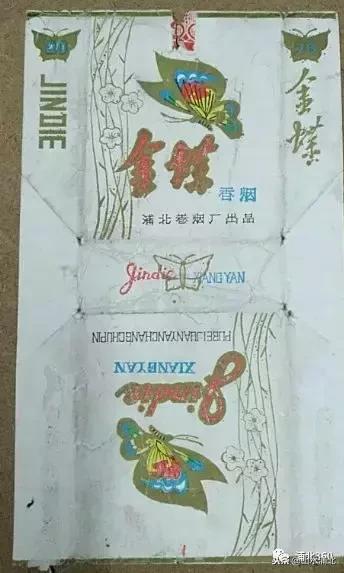 20
JINDIE
金蝶
香烟
浦北卷烟厂出品
金蝶
Jindie XIANGYAN
PUBEIJUANYANCHANGCHUPIN
XIANGYAN
Jindie
浦北360
头条@山水浦北